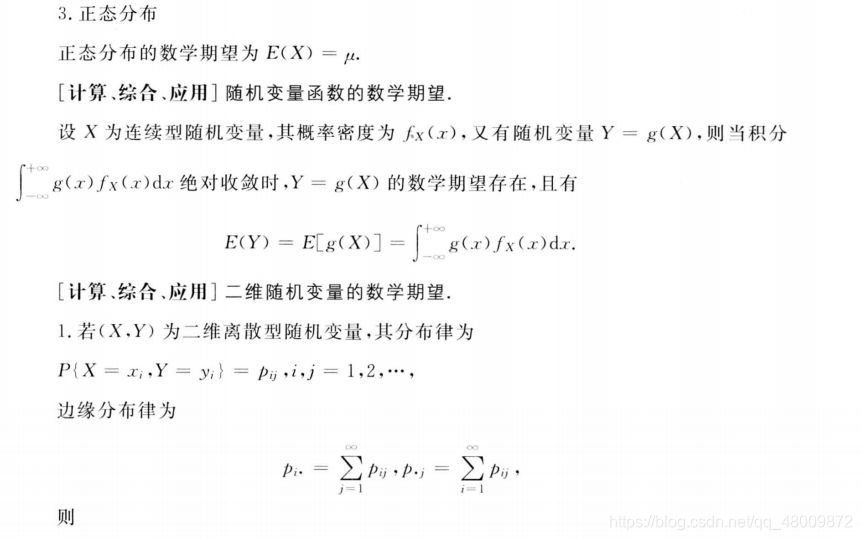 3. 正态分布
正态分布的数学期望为 E(X) = μ.
[计算、综合、应用] 随机变量函数的数学期望.
设 X 为连续型随机变量,其概率密度为 f_X(x),又有随机变量 Y = g(X),则当积分
∫_{-∞}^{+∞} g(x) f_X(x)dx 绝对收敛时,Y = g(X) 的数学期望存在,且有
E(Y) = E[g(X)] = ∫_{-∞}^{+∞} g(x) f_X(x)dx.
[计算、综合、应用] 二维随机变量的数学期望.
1. 若(X,Y) 为二维离散型随机变量,其分布律为
P{X = x_i ,Y = y_i} = p_{ij} ,i,j = 1,2,…,
边缘分布律为
p_{i·} = ∑_{j=1}^{∞} p_{ij} ,p_{·j} = ∑_{i=1}^{∞} p_{ij} ,
则
https://blog.csdn.net/qq_48009872